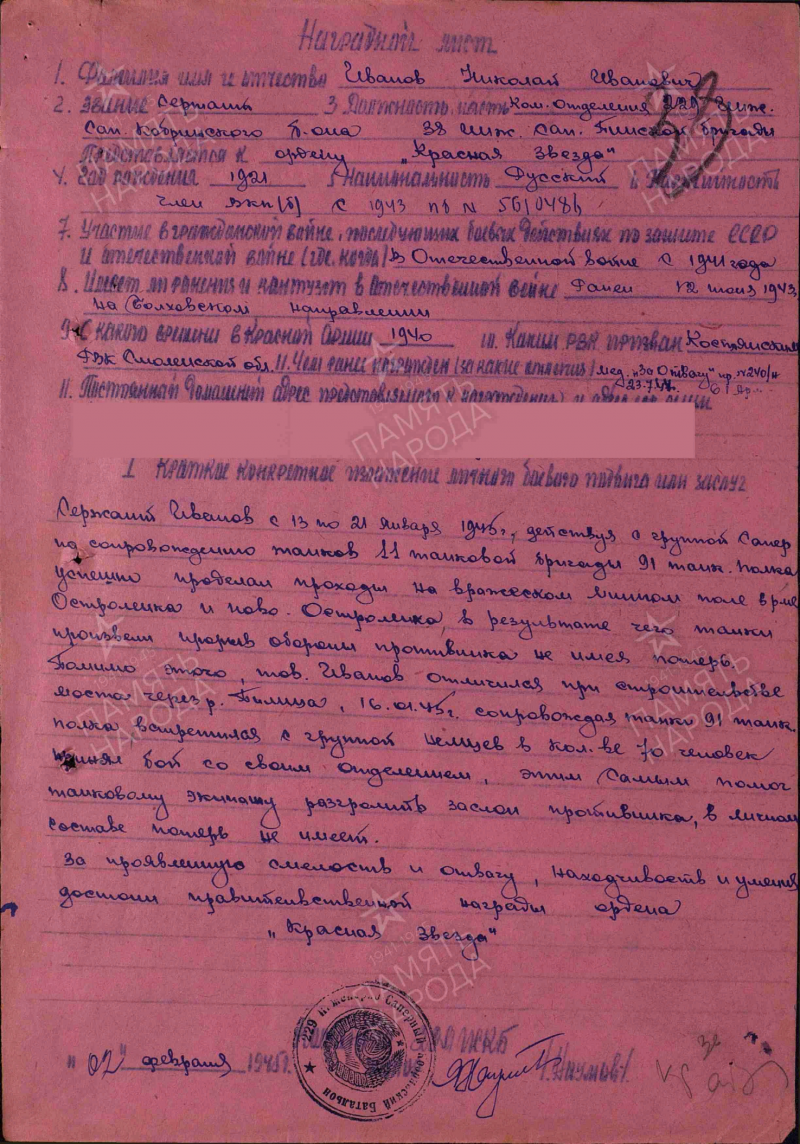 Наградной лист
1. Фамилия имя и отчество Иванов Николай Иванович
2. Звание Сержант 3 Должность, часть Ком. отделения 229 Инж.
Сап. Кобринского б-она 38 инж. сап. Пинской бригады
Представляется к ордену „Красная Звезда"
4. Год рождения 1921 5 Национальность Русский 6 Партийность
член ВКП(б) с 1943 пб N 5610486
7. Участие в гражданской войне, последующих боевых действиях по защите СССР
и отечественной войне (где, когда) В Отечественной войне с 1941 года
8. Имеет ли ранения и контузии в Отечественной войне Ранен 12 июля 1943
на Болховском направлении
9. С какого времени в Красной Армии 1940 10. Каким РВК призван
РВК Смоленской обл. 11. Чем ранее награжден (за какие отличия) мед. „За Отвагу" пр. №240/н
23.7.44.
11. Постоянный домашний адрес представляемого к награждению и адрес
I Краткое конкретное изложение личного боевого подвига или заслуг
Сержант Иванов с 13 по 21 января 1945г., действуя с группой Сапер
по сопровождению танков 11 танковой бригады 91 танк. полка
успешно проделал проходы на вражеском минном поле в р-не
Остроленка и ново. Остроленка, в результате чего танки
произвели прорыв обороны противника не имея потерь.
Помимо этого, тов. Иванов отличился при строительстве
моста через р. Пилица, 16.01.45г. сопровождая танки 91 танк.
полка встретился с группой немцев в кол-ве 70 человек
принял бой со своим отделением, этим Самым помог
танковому экипажу разгромить заслон противника, в личном
составе потерь не имеет.
За проявленную смелость и отвагу, находчивость и умения
достоин правительственной награды ордена
„Красная Звезда"
229 Инженерно Саперный Батальон
"02" февраля 1945г. /Наумов/
ПАМЯТЬ НАРОДА